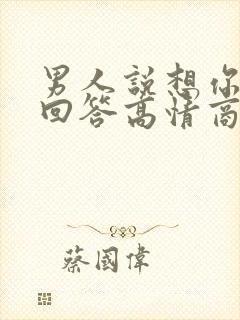 男人説想你
回答高情商
蔡國偉